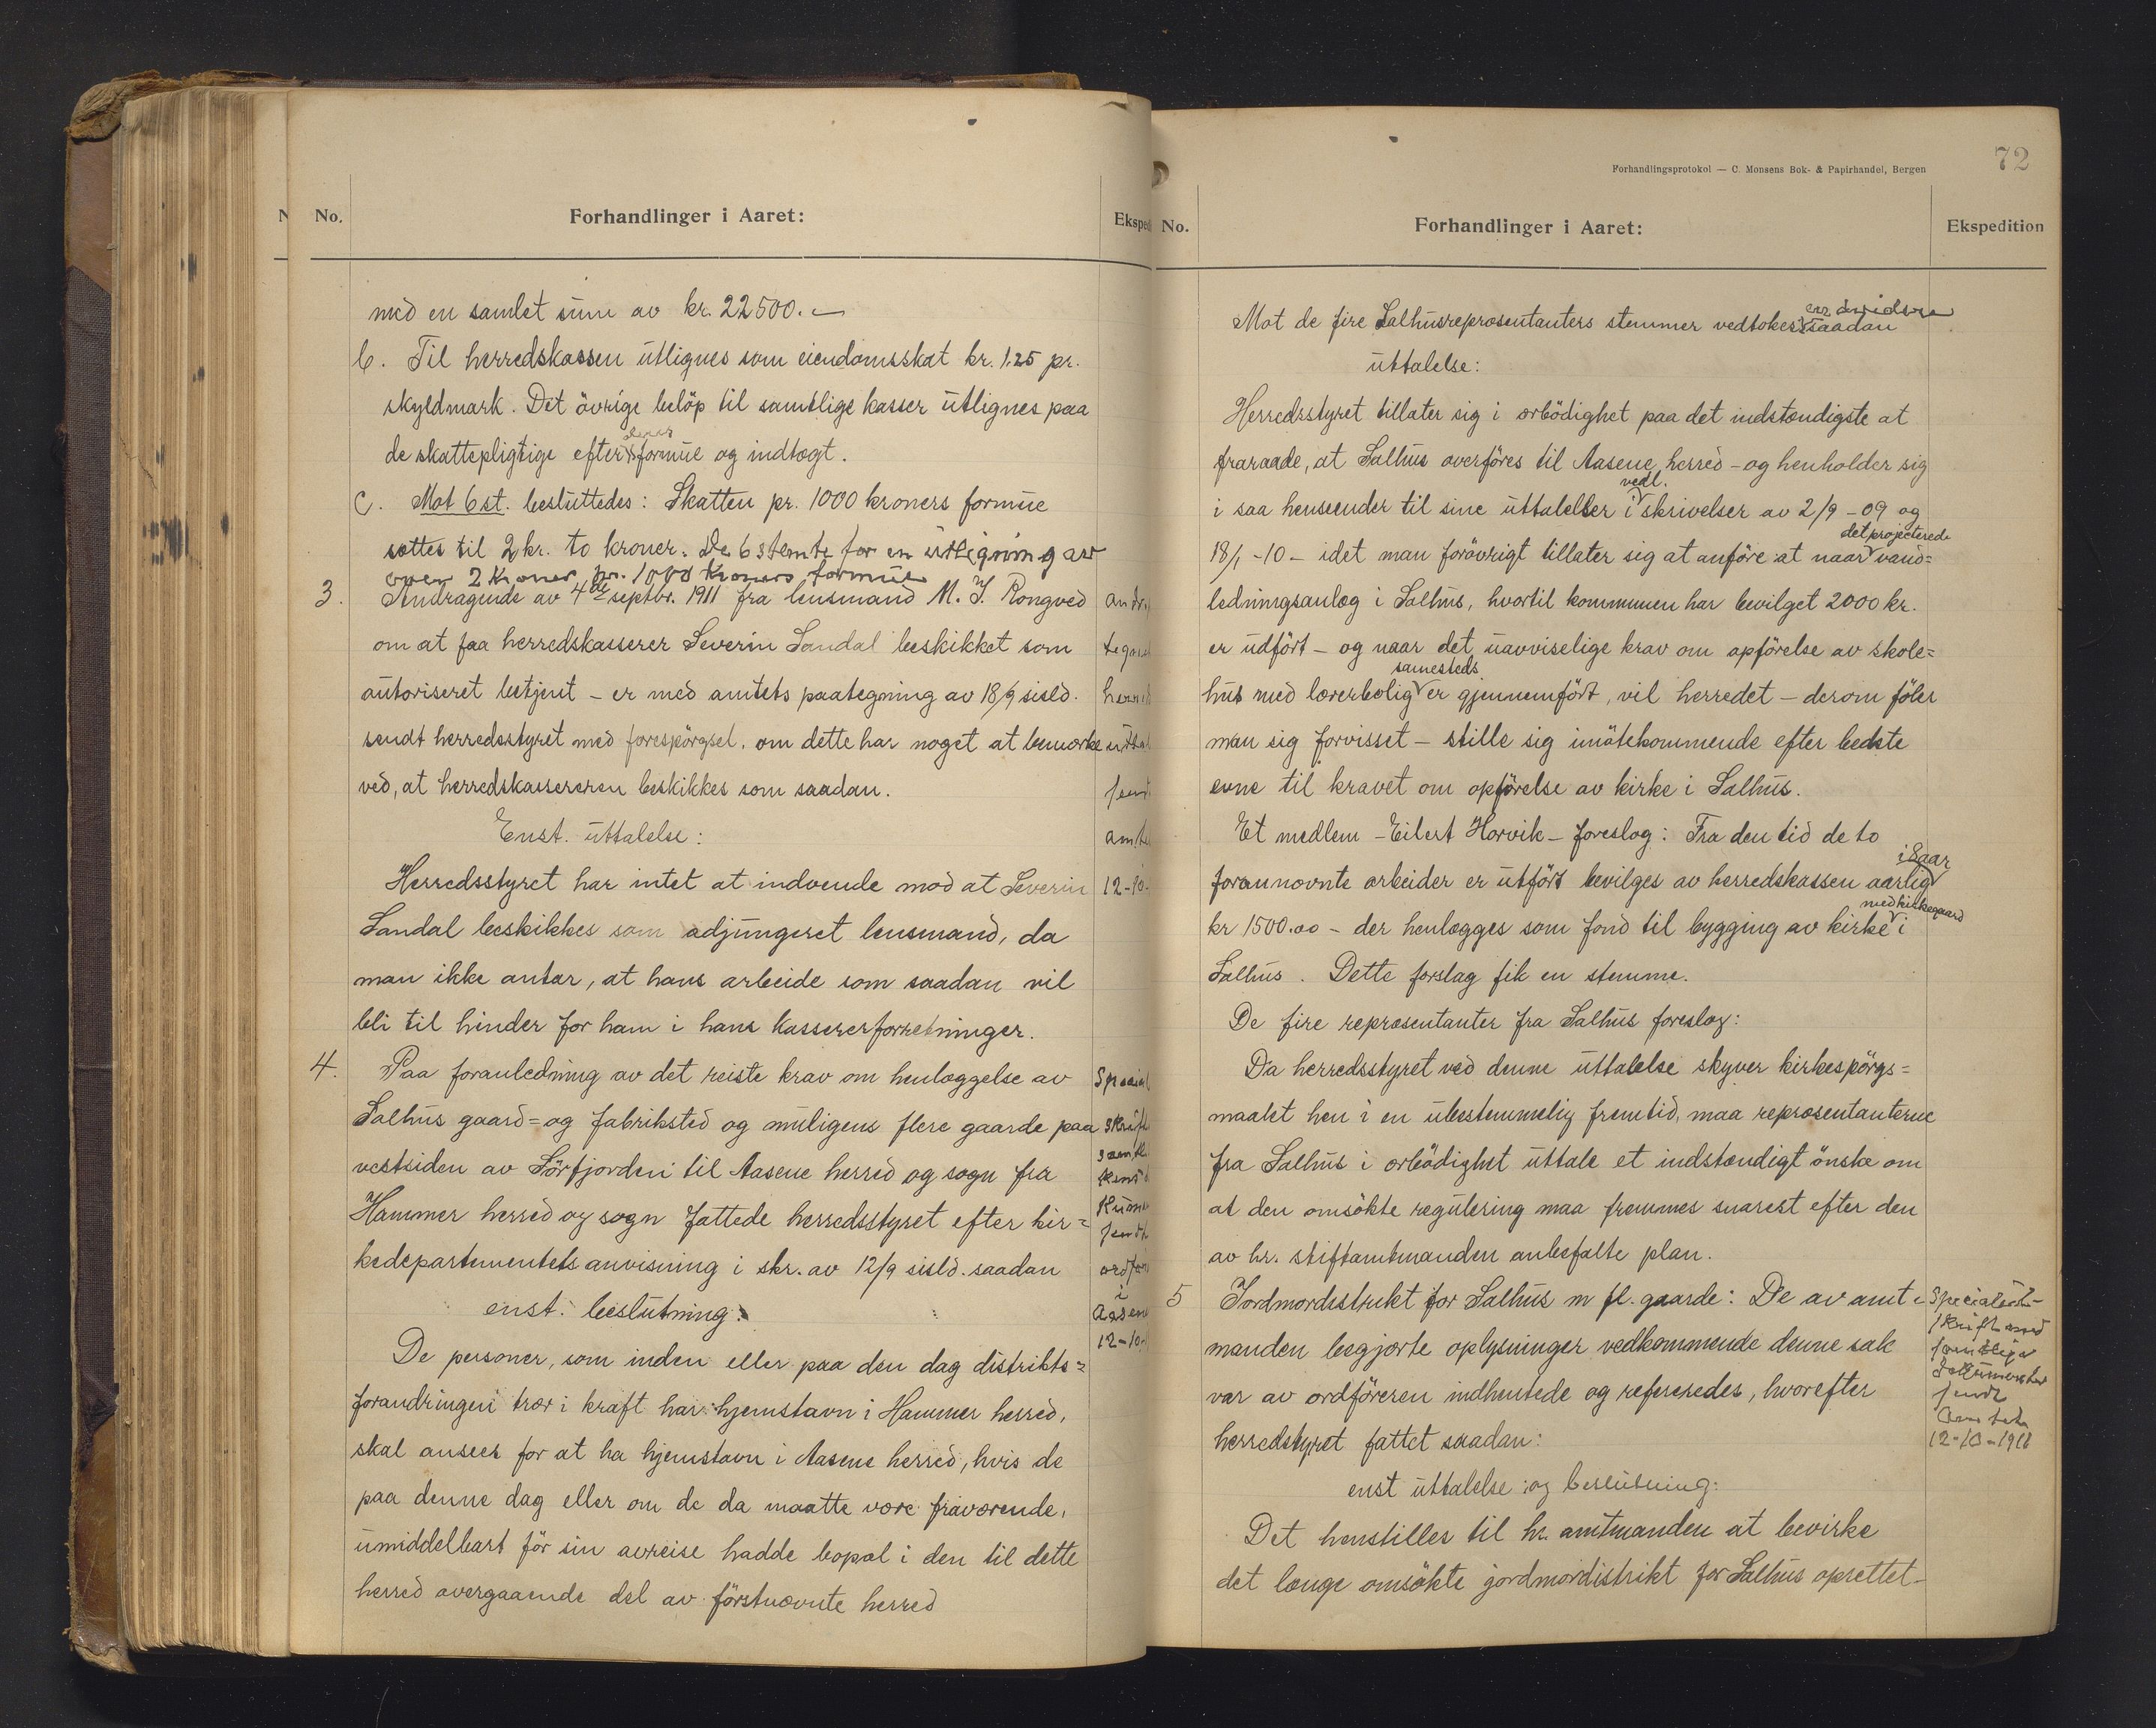 No.
Forhandlinger i Aaret:
med en samlet sum av kr. 22500.-
b. Til herredskassen utlignes som eiendomsskat kr. 1.25 pr.
skyldmark. Det övrige belöp til samtlige kasser utlignes paa
deres
de skattepligtige efter formue og indtægt.
C. Mot 6 st. besluttedes: Skatten pr. 1000 kroners formue
sættes til 2 kr. to kroner. De 6 stemte for en utligning av
over 2 Kroner pr. 1000 Kroners formue
3. Andragende av 4de septbr. 1911 fra lensmand M. J. Rongved
om at faa herredskasserer Severin Sandal beskikket som
autoriseret betjent - er med amtets paategning av 18/9 sisld.
sendt herredsstyret med forespörgsel, om dette har noget at bemærke
ved, at herredskassereren beskikkes som saadan.
Enst. uttalelse:
Herredsstyret har intet at indvende mod at Severin
Sandal beskikkes som adjungeret lensmand, da
man ikke antar, at hans arbeide som saadan vil
bli til hinder for ham i hans kassererforretninger.
12-10-
4. Paa foranledning av det reiste krav om henlæggelse av
Salhus gaard= og fabriksted og muligens flere gaarde paa
vestsiden av Sörfjorden til Aasene herred og sogn fra
Hammer herred og sogn fattede herredsstyret efter kir=
kedepartementets anvisning i skr. av 12/9 sisld. saadan
enst. beslutning:
De personer, som inden eller paa den dag distrikts=
forandringen trær i kraft har hjemstavn i Hammer herred,
skal ansees for at ha hjemstavn i Aasene herred, hvis de
paa denne dag eller om de da maatte være fraværende,
umiddelbart för sin avreise hadde bopæl i den til dette
herred overgaaende del av förstnævnte herred
12-10-
Forhandlingsprotokol — C. Monsens Bok- & Papirhandel, Bergen
72
No.
Forhandlinger i Aaret:
Ekspedition
Mot de fire Salhusrepræsentanters stemmer vedtokes saadan
uttalelse:
Herredsstyret tillater sig i ærbödighet paa det indstændigste at
fraraade, at Salhus overföres til Aasene herred - og henholder sig
vedl.
i saa henseender til sine uttalelser i skrivelser av 2/9 - 09 og
det projecterede
18/1 - 10 - idet man forövrigt tillater sig at anföre at naar vand=
ledningsanlæg i Salhus, hvortil kommunen har bevilget 2000 kr.
er udfört - og naar det uavviselige krav om opförelse av skole=
samesteds
hus med lærerbolig er gjennemfört, vil herredet - derom föler
man sig forvisset - stille sig imötekommende efter bedste
evne til kravet om opförelse av kirke i Salhus.
Et medlem - Eilert Horvik - foreslog: Fra den tid de to
i 8 aar
forannævnte arbeider er utfört bevilges av herredskassen aarlig
med kirkegaard
kr 1500.00 - der henlægges som fond til bygging av kirke i
Salhus. Dette forslag fik en stemme.
De fire repræsentanter fra Salhus foreslog:
Da herredsstyret ved denne uttalelse skyver kirkespörgs=
maalet hen i en ubestemmelig fremtid, maa repræsentanterne
fra Salhus i ærbödighet uttale et indstændigt önske om
at den omsökte regulering maa fremmes snarest efter den
av hr. stiftamtmanden anbefalte plan.
5 Jordmordistrikt for Salhus m fl. gaarde: De av amt=
manden begjærte oplysninger vedkommende denne sak
var av ordföreren indhentede og refereredes, hvorefter
herredstyret fattet saadan:
enst uttalelse og beslutning:
Det henstilles til hr. amtmanden at bevirke
det længe omsökte jordmordistrikt for Salhus oprettet-
Specialut-
skrift med
samtlige
Dokumenter
sendt
Amtet
12-10-1911